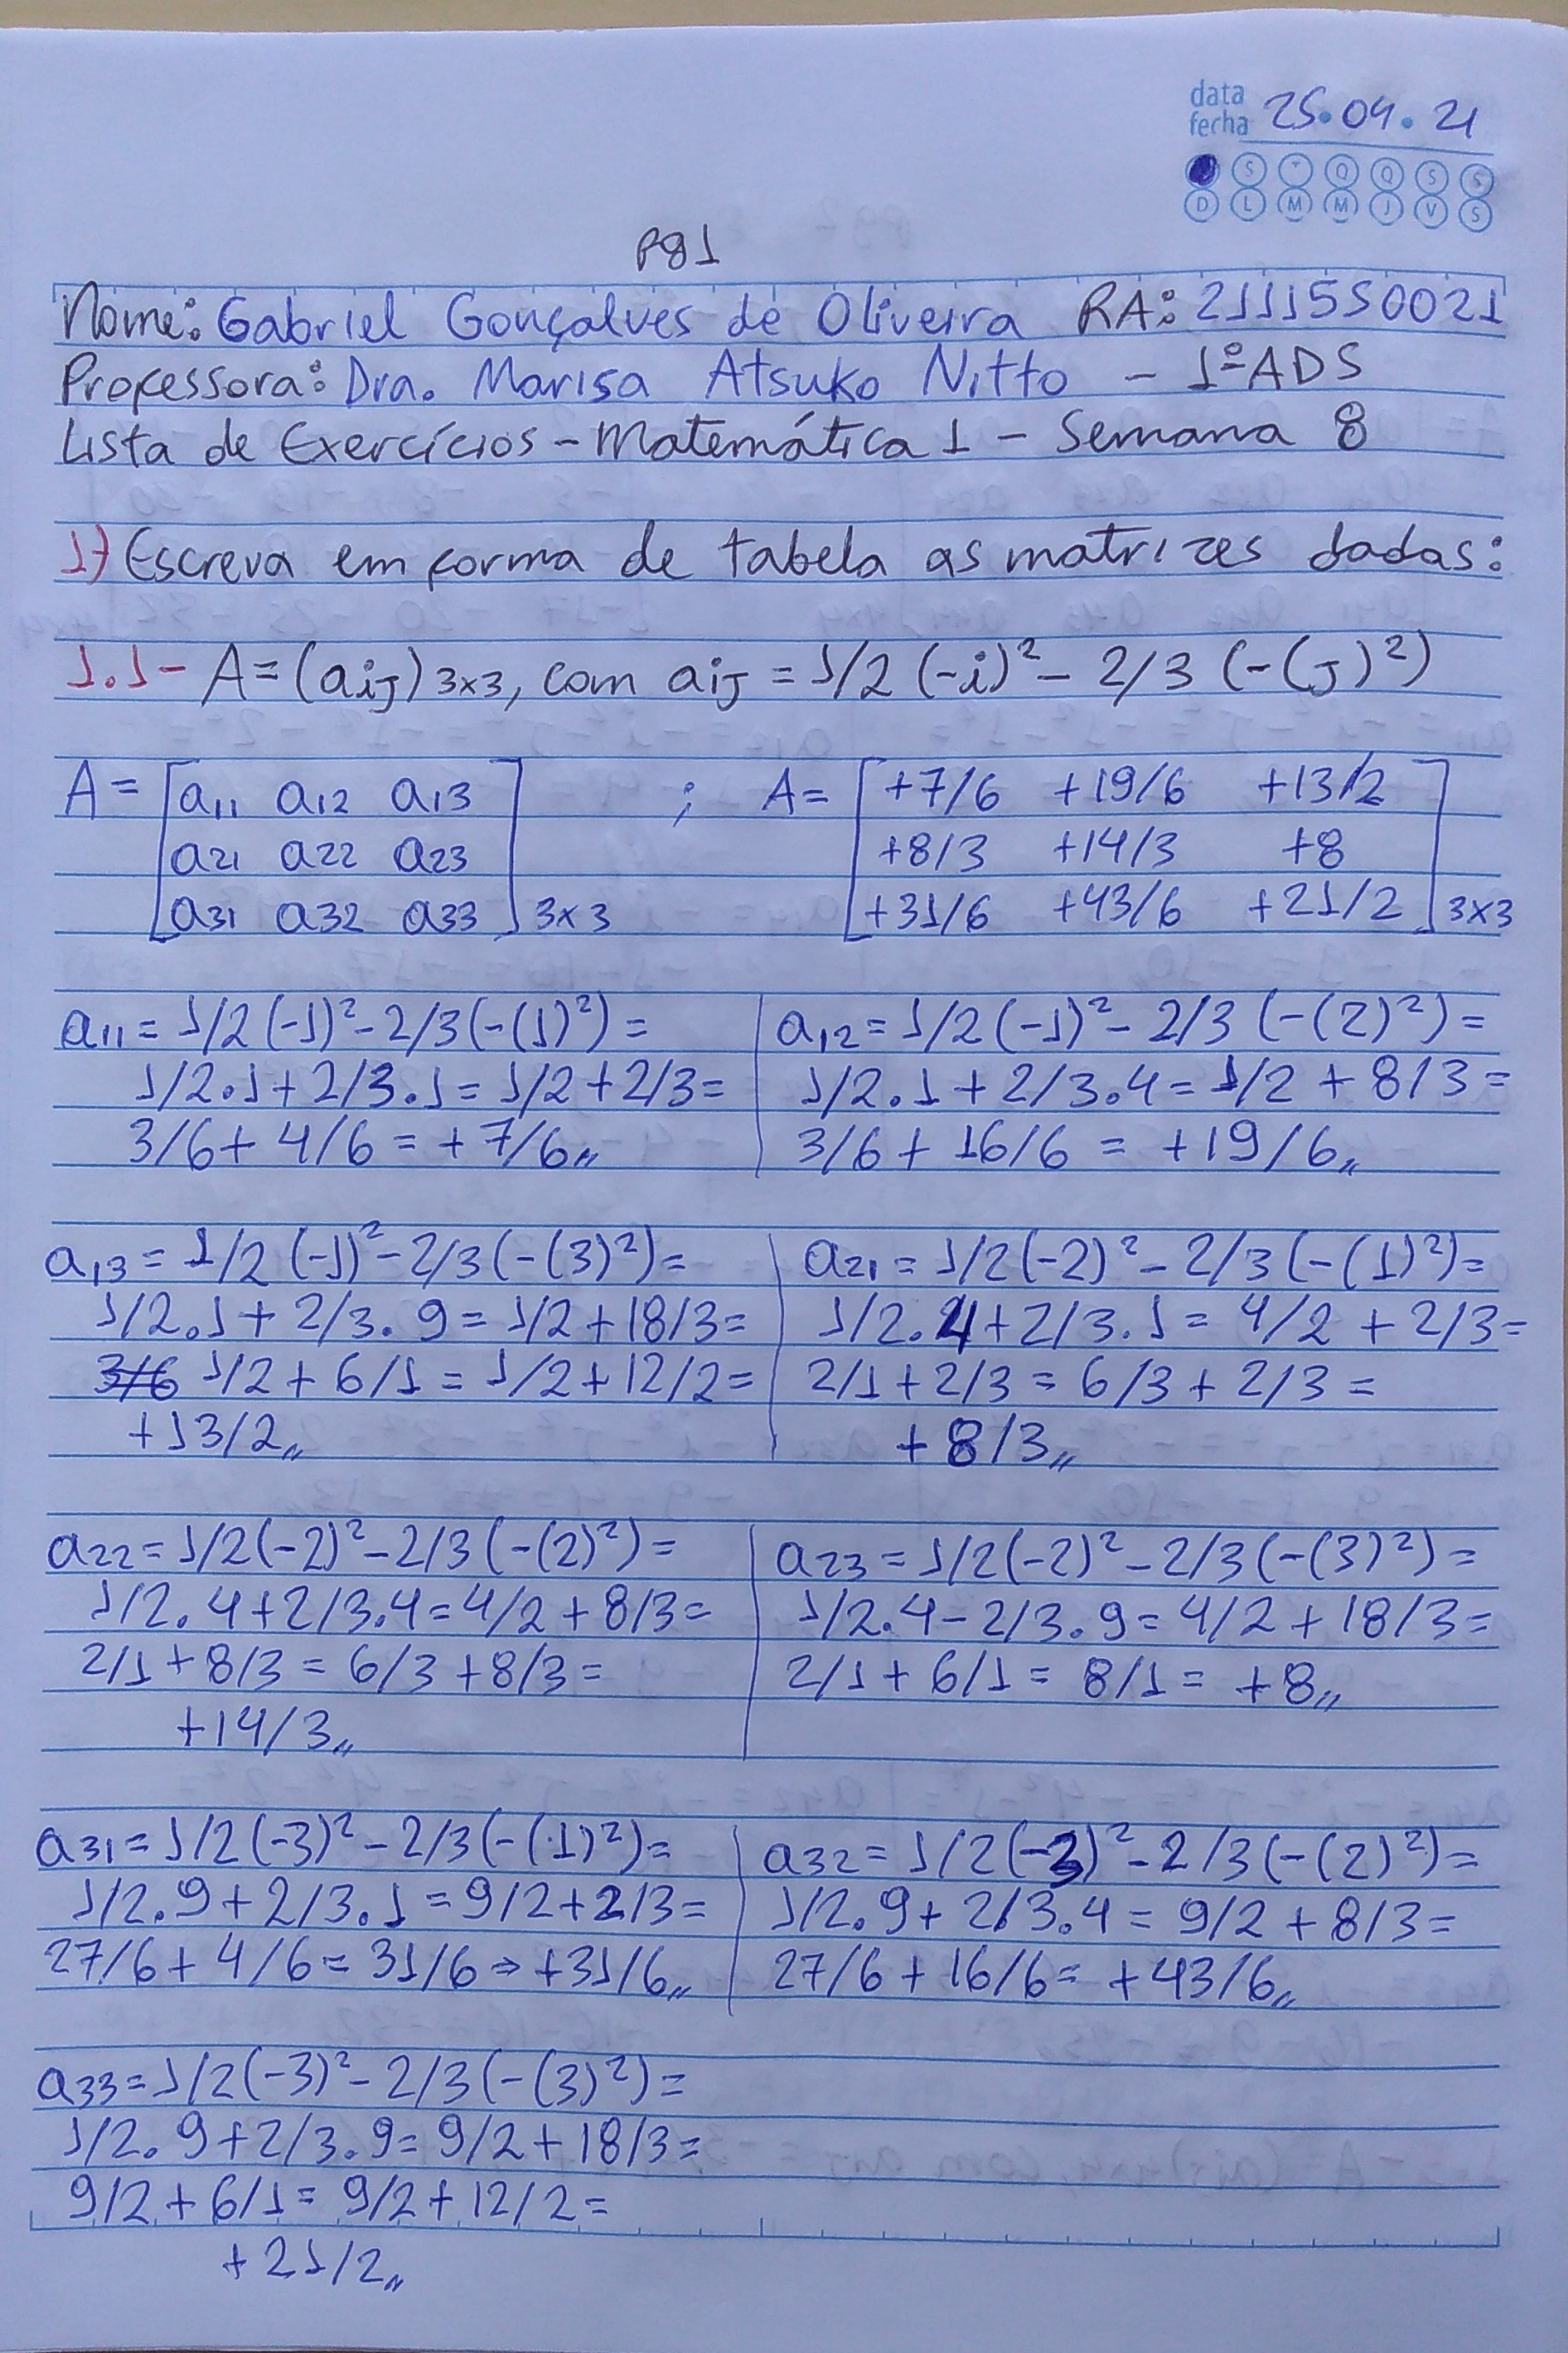 data
fecha 25.04.21
S T Q Q S S
D L M M J V S
Pg 1
Nome: Gabriel Gonçalves de Oliveira RA: 2111550021
Professora: Dra. Marisa Atsuko Nitto - 1º ADS
Lista de Exercícios - Matemática 1 - Semana 8
1) Escreva em forma de tabela as matrizes dadas:
1.1- A = (aij) 3x3, com aij = 1/2 (-i)² - 2/3 (-(j)²)
A = [a11 a12 a13 ; A = [+7/6 +19/6 +13/2
a21 a22 a23 +8/3 +14/3 +8
a31 a32 a33] 3x3 +31/6 +43/6 +21/2] 3x3
a11 = 1/2 (-1)² - 2/3 (-(1)²) =
1/2.1 + 2/3.1 = 1/2 + 2/3 =
3/6 + 4/6 = +7/6,,
a12 = 1/2 (-1)² - 2/3 (-(2)²) =
1/2.1 + 2/3.4 = 1/2 + 8/3 =
3/6 + 16/6 = +19/6,,
a13 = 1/2 (-1)² - 2/3 (-(3)²) =
1/2.1 + 2/3.9 = 1/2 + 18/3 =
3/6 1/2 + 6/1 = 1/2 + 12/2 =
+13/2,,
a21 = 1/2 (-2)² - 2/3 (-(1)²) =
1/2.4 + 2/3.1 = 4/2 + 2/3 =
2/1 + 2/3 = 6/3 + 2/3 =
+8/3,,
a22 = 1/2 (-2)² - 2/3 (-(2)²) =
1/2.4 + 2/3.4 = 4/2 + 8/3 =
2/1 + 8/3 = 6/3 + 8/3 =
+14/3,,
a23 = 1/2 (-2)² - 2/3 (-(3)²) =
1/2.4 - 2/3.9 = 4/2 + 18/3 =
2/1 + 6/1 = 8/1 = +8,,
a31 = 1/2 (-3)² - 2/3 (-(1)²) =
1/2.9 + 2/3.1 = 9/2 + 2/3 =
27/6 + 4/6 = 31/6 → +31/6,,
a32 = 1/2 (-3)² - 2/3 (-(2)²) =
1/2.9 + 2/3.4 = 9/2 + 8/3 =
27/6 + 16/6 = +43/6,,
a33 = 1/2 (-3)² - 2/3 (-(3)²) =
1/2.9 + 2/3.9 = 9/2 + 18/3 =
9/2 + 6/1 = 9/2 + 12/2 =
+21/2,,